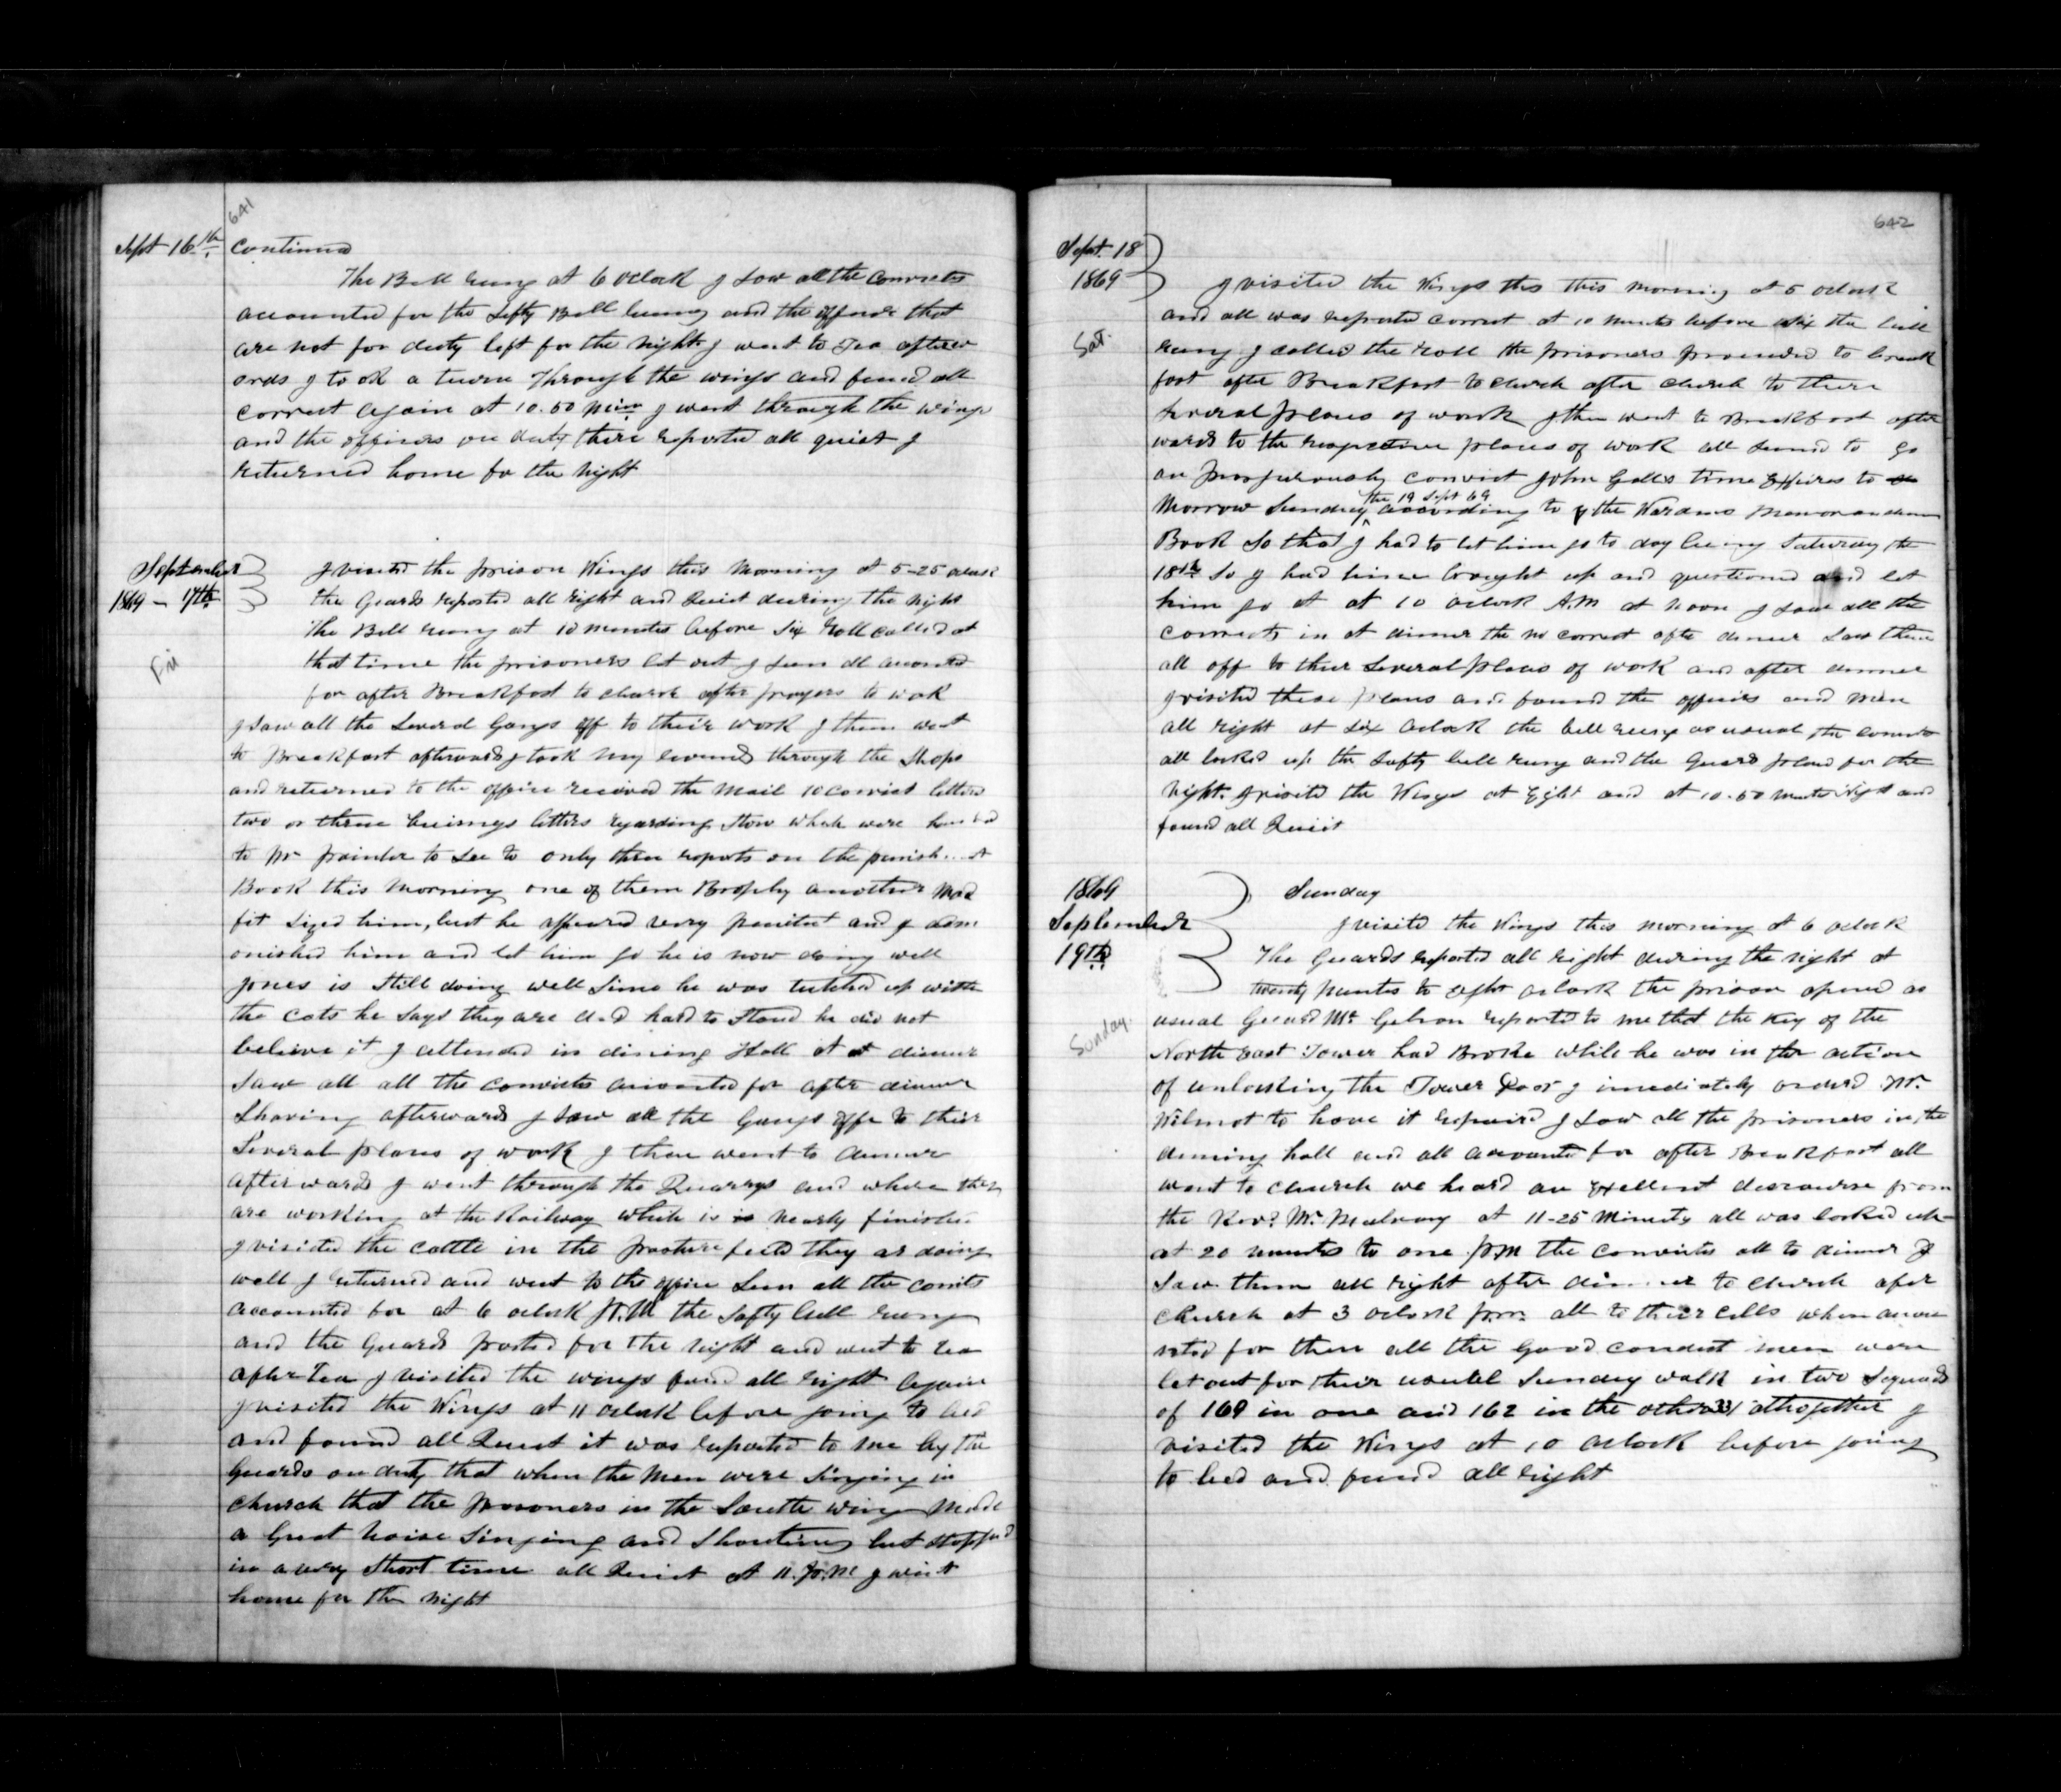 641
Sept 16th Continued
The Bell rung at 6 oclock I saw all the Convicts
accounted for the Safty Bell rung and the officers that
are not for duty left for the night I went to Tea afterw
ards I to ok a turn Through the wings and found all
correct again at 10.50 min I went through the wings
and the officers on duty there reported all quiet I
returned home for the night
September
1869 - 17th
Fri
I visited the prison Wings this Morning at 5-25 oclock
the Guards reported all right and Quiet during the night
The Bell rung at 10 minutes before six Roll called at
that time the prisoners let out I seen all accounted
for after Breakfast to church after prayers to work
I saw all the Several Gangs off to their work I then went
to Breakfast afterwards I took my rounds through the Shops
and returned to the office received the Mail 10 convict letters
two or three buisnys letters regarding Stow which were handed
to Mr Painter to See to only three reports on the punish
Book this Morning one of them Brophy another mad
fit sized him, but he appeared very penitent and I adm
onished him and let him go he is now doing well
Jones is Still doing well Since he was tutched up with
the cats he says they are d-d hard to Stand he did not
believe it I attended in dining Hall at at dinner
Saw all all the convicts accounted for after dinner
Shaving afterwards I saw all the Gangs off to their
Several places of work I then went to dinner
afterwards I went through the Quarrys and where they
are working at the Railway which is is nearly finished
I visited the cattle in the prasture feild they ar doing
well I returned and went to the office Seen all the convits
accounted for at 6 oclock P.M the Safty bell rung
and the Guards posted for the night and went to tea
after Tea I visited the wings found all right again
I visited the Wings at 11 oclock before going to bed
and found all Quiet it was reported to me by the
Guards on duty that when the Men were Singing in
church that the prisoners in the South wing Made
a Great Noise Singing and Shouting but stopped
in a very Short time all Quiet at 11. P.M I went
home for the night
642
Sept. 18
1869
Sat.
I visited the Wings this this morning at 5 oclock
and all was reported correct at 10 minutes before six the bell
rung I called the roll the prisoners proceeded to break
fast after Breakfast to church after church to there
several places of work I then went to Breakfast after
wards to the respective places of work all seemed to go
on prosperously convict John Galls time Expires to
the 19 Sept 69
Morrow Sunday according to the Wardens Memorandum
Book So that I had to let him go to day being Saturday the
18th So I had him brought up and questioned and let
him go at at 10 oclock A.M at noon I saw all the
convicts in at dinner the no correct afte dinner Saw them
all off to their Several places of work and after dinner
I visited these places and found the officers and men
all right at six oclock the bell rung as usual the convicts
all locked up the Safty bell rung and the Guard placed for the
Night. I visited the Wings at Eight and at 10-50 minutes Night and
found all Quiit
1869
September
19th
Sunday.
Sunday
I visited the Wings this morning at 6 oclock
The Guards reported all right during the night at
twenty minutes to eight oclock the prison opened as
usual Guard Mr Gibson reported to me that the Key of the
North East Tower had Broke while he was in the action
of unlocking the Tower Door I imediately ordered Mr.
Wilmot to have it repaired I Saw all the prisoners in the
dinning hall and all accounted for after Breakfast all
went to church we heard an Exellent discourse from
the Revd. Mr. Mulvany at 11-25 Minuty all was locked up
at 20 minutes to one P.M the convicts all to dinner I
Saw them all right after dinner to church after
church at 3 oclock P.m. all to their cells when accou
nted for then all the Good conduct men were
let out for their usual Sunday walk in two Squads
of 169 in one and 162 in the other 331 altogether I
visited the Wings at 10 oclock before going
to bed and found all right